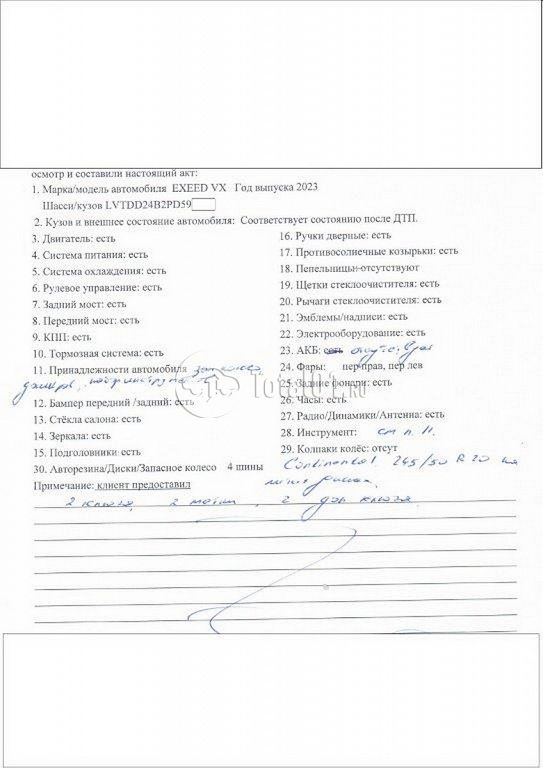 осмотр и составили настоящий акт:
1. Марка/модель автомобиля EXEED VX Год выпуска 2023
Шасси/кузов LVTDD24B2PD59
2. Кузов и внешнее состояние автомобиля: Соответствует состоянию после ДТП.
3. Двигатель: есть
4. Система питания: есть
5. Система охлаждения: есть
6. Рулевое управление: есть
7. Задний мост: есть
8. Передний мост: есть
9. КПП: есть
10. Тормозная система: есть
11. Принадлежности автомобиля
12. Бампер передний /задний: есть
13. Стёкла салона: есть
14. Зеркала: есть
15. Подголовники есть
16. Ручки дверные: есть
17. Противосолнечные козырьки: есть
18. Пепельницы отсутствуют
19. Щетки стеклоочистителя: есть
20. Рычаги стеклоочистителя: есть
21. Эмблемы/надписи: есть
22. Электрооборудование: есть
23. АКБ: есть
24. Фары: пер прав, пер лев
25. Задние фонари: есть
26. Часы: есть
27. Радио/Динамики/Антенна: есть
28. Инструмент: см п. 11.
29. Колпаки колёс: отсут
30. Авторезина/Диски/Запасное колесо 4 шины Continental 245/50 R 20 на
Примечание: клиент предоставил
2 ключа, 2 метки, 2
Total01.ru